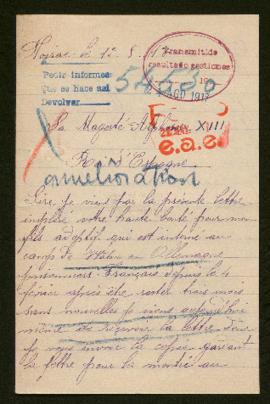 Noyrac le 1er 8. 17
Transmitido
resultado gestiones
19
Pedir informes
Que se hace así
Devolver
54530
2 AGO 1917
Sa Majesté Alphonse XIII
e.a.e.
Roi d'Espagne
amélioration
Sire je viens par la présente lettre
implorer votre haute bonté pour mon
fils adoptif qui est interné au
camp de en Allemagne
prisonnier Français depuis le 4
février après être rester trois mois
sans nouvelles je viens aujourd'hui
même de recevoir la lettre dont
je vous envoie la copie
la lettre pour la moitié au